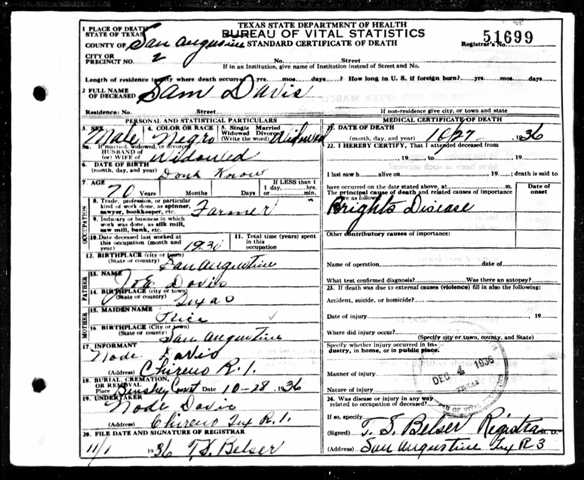 TEXAS STATE DEPARTMENT OF HEALTH
BUREAU OF VITAL STATISTICS
STANDARD CERTIFICATE OF DEATH
51699
Registrar's No.
1 PLACE OF DEATH
STATE OF TEXAS
COUNTY OF San Augustine
CITY OR
PRECINCT NO. 2
No. Street
If in an Institution, give name of Institution instead of Street and No.
Length of residence where death occurred yrs. mos. days. How long in U. S. if foreign born? yrs. mos. days
2 FULL NAME
OF DECEASED Sam Davis
Residence: No. Street
If non-residence give city, or town and state
PERSONAL AND STATISTICAL PARTICULARS
3 SEX Male
4 COLOR OR RACE Negro
5 Single Married
Widowed Divorced
(Write the word) Widowed
5a. If married, widowed, or divorced
HUSBAND OF
(or) WIFE OF Widowed
6 DATE OF BIRTH
(month, day, year) Dont Know
7 AGE
70 Years Months Days
If LESS than 1
day, hours, min.
8. Trade, profession, or particular
kind of work done, as spinner,
sawyer, bookkeeper, etc. Farmer
9. Industry or business in which
work was done, as silk mill,
saw mill, bank, etc.
10. Date deceased last worked at
this occupation (month and
year) 1930
11. Total time (years) spent in this
occupation
12. BIRTHPLACE (city or town)
(State or country) San Augustine
FATHER
13. NAME Joe Davis
14. BIRTHPLACE (city or town)
(State or country) Texas
MOTHER
15. MAIDEN NAME
16. BIRTHPLACE (city or town)
(State or country) San Augustine
17 INFORMANT
Node Davis
(Address) Chireno R. 1.
18. BURIAL, CREMATION,
OR REMOVAL
Place Date 10-28 1936
19 UNDERTAKER
Node Davis
(Address) Chireno Tex R. 1.
20. FILE DATE AND SIGNATURE OF REGISTRAR
11/1 1936 T. S. Belser
MEDICAL CERTIFICATE OF DEATH
21. DATE OF DEATH
(month, day, year) 10/27 1936
22. I HEREBY CERTIFY, That I attended deceased from
19 to 19
I last saw h alive on 19 ; death is said to
have occurred on the date stated above, at m.
The principal cause of death and related causes of importance
were as follows:
Date of
onset
Brights Disease
Other contributory causes of importance:
Name of operation Date of
What test confirmed diagnosis? Was there an autopsy?
23. If death was due to external causes (violence) fill in also the following:
Accident, suicide, or homicide?
Date of injury 19
Where did injury occur?
(Specify city or town, county, and State)
Specify whether injury occurred in Industry, in home, or in public place.
Manner of injury
Nature of injury
DEC 4 1936
24. Was disease or injury in any way
related to occupation of deceased?
If so, specify
(Signed) T. S. Belser Registrar
(Address) San Augustine Tex R 3